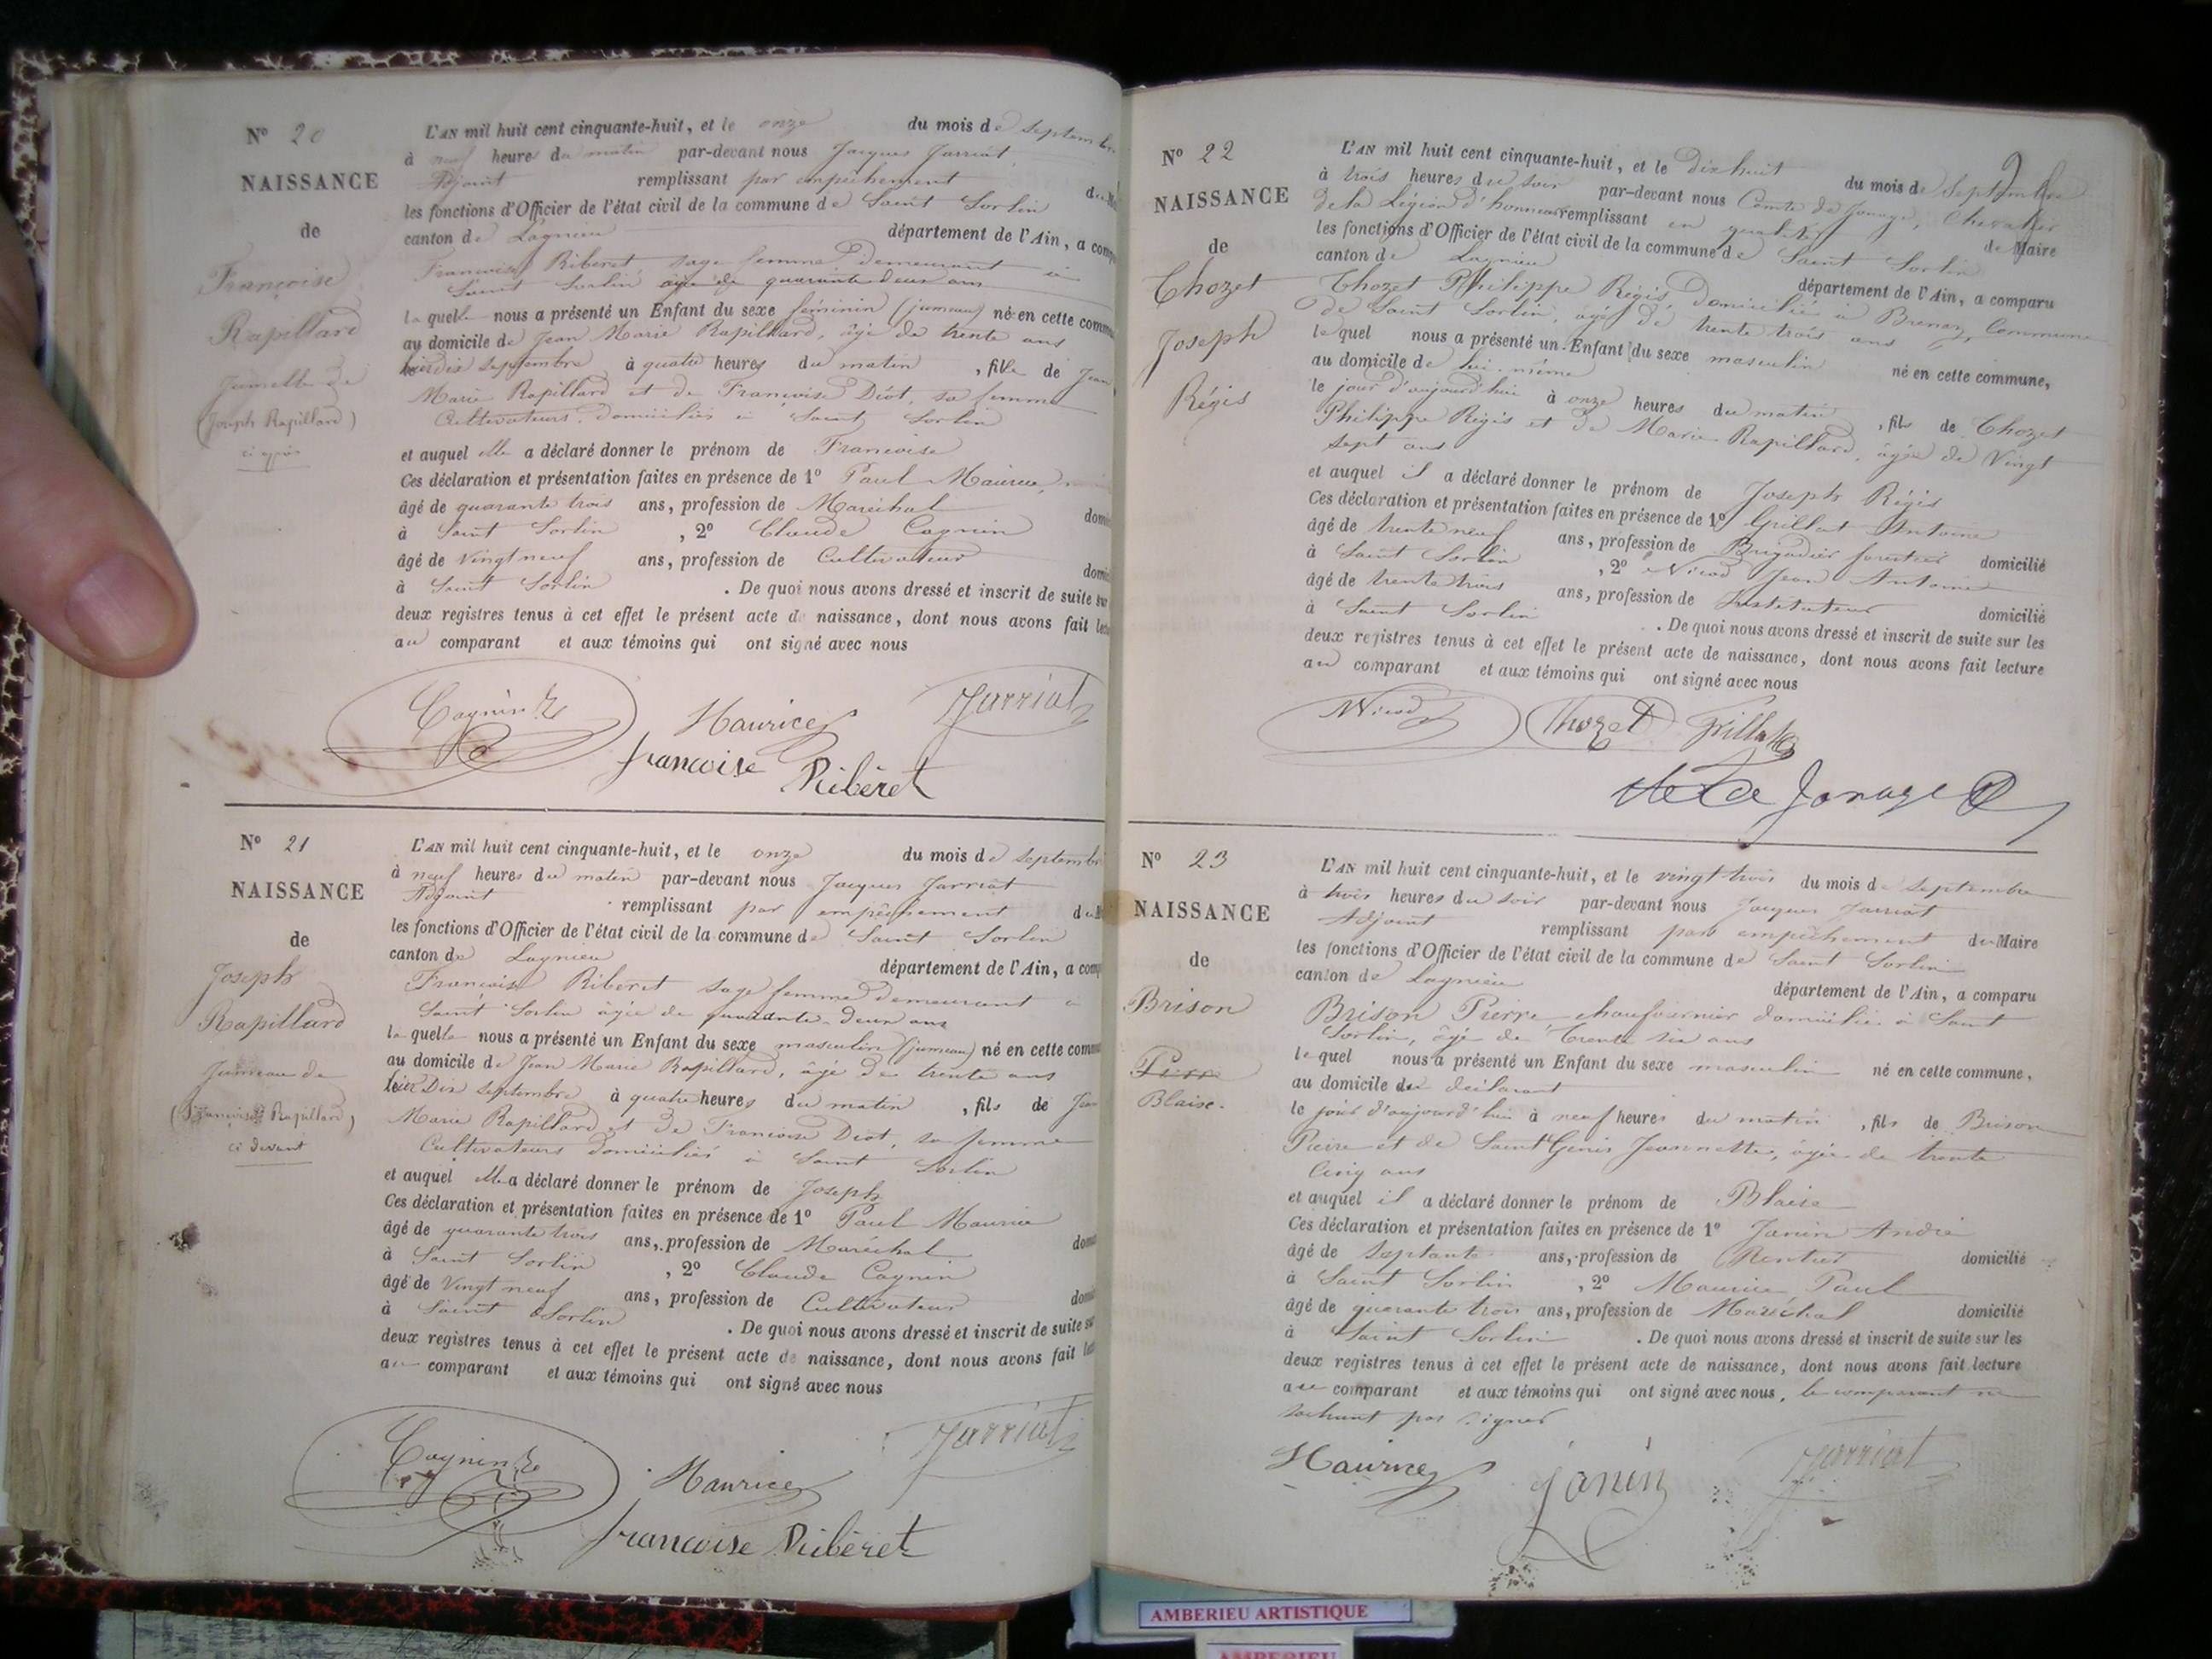 N° 20
NAISSANCE
de
Françoise
Rapillard
Jumelle de
(Joseph Rapillard)
ci après
L'AN mil huit cent cinquante-huit, et le onze du mois de Septembre
à neuf heures du matin par-devant nous Jacques Jarriat
Adjoint remplissant par empêchement du
les fonctions d'Officier de l'état civil de la commune de Saint Sorlin
canton de Lagnieu département de l'Ain, a
Francoise Riberet sage femme demeurant à
Saint Sorlin âgée de quarante deux ans
laquelle nous a présenté un Enfant du sexe féminin (jumeau) né en cette
au domicile de Jean Marie Rapillard, âgé de trente ans
hier dix septembre à quatre heures du matin, fille de Jean
Marie Rapillard et de Francoise Diot, sa femme
Cultivateurs domiciliés à Saint Sorlin
et auquel elle a déclaré donner le prénom de Francoise
Ces déclaration et présentation faites en présence de 1° Paul Maurice,
âgé de quarante trois ans, profession de Maréchal
à Saint Sorlin, 2° Claude Cagnin
âgé de Vingt neuf ans, profession de Cultivateur
à Saint Sorlin. De quoi nous avons dressé et inscrit de suite sur
deux registres tenus à cet effet le présent acte de naissance, dont nous avons fait
au comparant et aux témoins qui ont signé avec nous
Cagnin Maurice Jarriat
francoise Ribéret
N° 21
NAISSANCE
de
Joseph
Rapillard
Jumeau de
(Françoise Rapillard)
ci devant
L'AN mil huit cent cinquante-huit, et le onze du mois de Septembre
à neuf heures du matin par-devant nous Jacques Jarriat
Adjoint remplissant par empêchement du
les fonctions d'Officier de l'état civil de la commune de Saint Sorlin
canton de Lagnieu département de l'Ain, a
Francoise Riberet sage femme demeurant à
Saint Sorlin âgée de quarante-deux ans
laquelle nous a présenté un Enfant du sexe masculin (jumeau) né en cette
au domicile de Jean Marie Rapillard, âgé de trente ans
hier Dix septembre à quatre heures du matin, fils de Jean
Marie Rapillard et de Francoise Diot, sa femme
Cultivateurs domiciliés à Saint Sorlin
et auquel elle a déclaré donner le prénom de Joseph
Ces déclaration et présentation faites en présence de 1° Paul Maurice
âgé de quarante trois ans, profession de Maréchal
à Saint Sorlin, 2° Claude Cagnin
âgé de Vingt neuf ans, profession de Cultivateur
à Saint Sorlin. De quoi nous avons dressé et inscrit de suite
deux registres tenus à cet effet le présent acte de naissance, dont nous avons fait
au comparant et aux témoins qui ont signé avec nous
Cagnin Maurice Jarriat
francoise Ribéret
N° 22
NAISSANCE
de
Chozet
Joseph
Régis
L'AN mil huit cent cinquante-huit, et le dix huit du mois de Septembre
à trois heures du soir par-devant nous Comte de Jonage, Chevalier
de la Légion d'honneur remplissant en qualité de Maire
les fonctions d'Officier de l'état civil de la commune de Saint Sorlin
canton de Lagnieu département de l'Ain, a comparu
Chozet Philippe Régis, domicilié à Brenaz, Commune
de Saint Sorlin, âgé de trente trois ans
lequel nous a présenté un Enfant du sexe masculin né en cette commune,
au domicile de lui-même
le jour d'aujourd'hui à onze heures du matin, fils de Chozet
Philippe Régis et de Marie Rapillard, âgée de Vingt
sept ans
et auquel il a déclaré donner le prénom de Joseph Régis
Ces déclaration et présentation faites en présence de 1° Grillat Antoine
âgé de trente neuf ans, profession de Brigadier forestier domicilié
à Saint Sorlin, 2° Nicod Jean Antoine
âgé de trente trois ans, profession de Instituteur domicilié
à Saint Sorlin. De quoi nous avons dressé et inscrit de suite sur les
deux registres tenus à cet effet le présent acte de naissance, dont nous avons fait lecture
au comparant et aux témoins qui ont signé avec nous
Nicod Thozet Grillat
de Jonage
N° 23
NAISSANCE
de
Brison
Pierre
Blaise.
L'AN mil huit cent cinquante-huit, et le vingt trois du mois de Septembre
à trois heures du soir par-devant nous Jacques Jarriat
Adjoint remplissant par empêchement du Maire
les fonctions d'Officier de l'état civil de la commune de Saint Sorlin
canton de Lagnieu département de l'Ain, a comparu
Brison Pierre chaufournier domicilié à Saint
Sorlin, âgé de Trente six ans
lequel nous a présenté un Enfant du sexe masculin né en cette commune,
au domicile du déclarant
le jour d'aujourd'hui à neuf heures du matin, fils de Brison
Pierre et de Saint Genis Jeannette, âgée de trente
Cinq ans
et auquel il a déclaré donner le prénom de Blaise
Ces déclaration et présentation faites en présence de 1° Janin André
âgé de Septante ans, profession de Rentier domicilié
à Saint Sorlin, 2° Maurice Paul
âgé de quarante trois ans, profession de Maréchal domicilié
à Saint Sorlin. De quoi nous avons dressé et inscrit de suite sur les
deux registres tenus à cet effet le présent acte de naissance, dont nous avons fait lecture
au comparant et aux témoins qui ont signé avec nous, le comparant ne
sachant pas signer
Maurice Janin Jarriat
AMBERIEU ARTISTIQUE
AMBERIEU